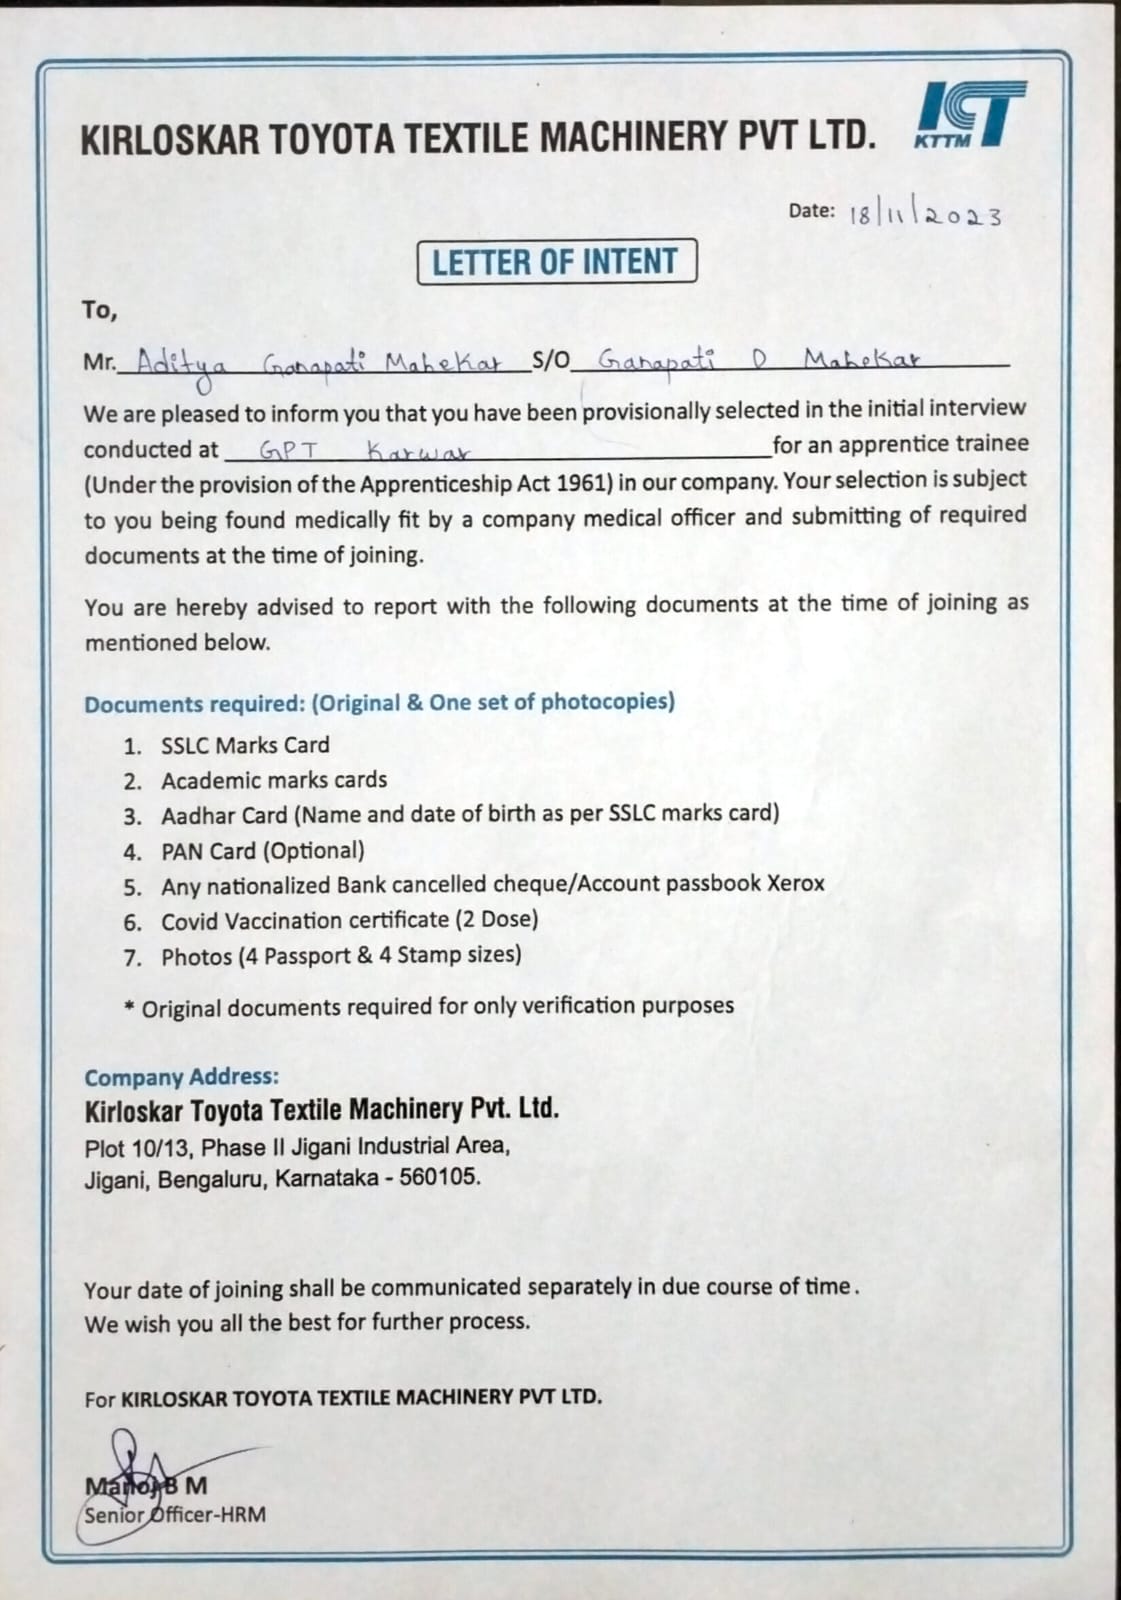 KIRLOSKAR TOYOTA TEXTILE MACHINERY PVT LTD.
KTTM
Date: 18/11/2023
LETTER OF INTENT
To,
Mr. Aditya Ganapati Mahekar S/O Ganapati D Mahekar
We are pleased to inform you that you have been provisionally selected in the initial interview
conducted at GPT Karwar for an apprentice trainee
(Under the provision of the Apprenticeship Act 1961) in our company. Your selection is subject
to you being found medically fit by a company medical officer and submitting of required
documents at the time of joining.
You are hereby advised to report with the following documents at the time of joining as
mentioned below.
Documents required: (Original & One set of photocopies)
1. SSLC Marks Card
2. Academic marks cards
3. Aadhar Card (Name and date of birth as per SSLC marks card)
4. PAN Card (Optional)
5. Any nationalized Bank cancelled cheque/Account passbook Xerox
6. Covid Vaccination certificate (2 Dose)
7. Photos (4 Passport & 4 Stamp sizes)
* Original documents required for only verification purposes
Company Address:
Kirloskar Toyota Textile Machinery Pvt. Ltd.
Plot 10/13, Phase II Jigani Industrial Area,
Jigani, Bengaluru, Karnataka - 560105.
Your date of joining shall be communicated separately in due course of time.
We wish you all the best for further process.
For KIRLOSKAR TOYOTA TEXTILE MACHINERY PVT LTD.
Manoj B M
Senior Officer-HRM